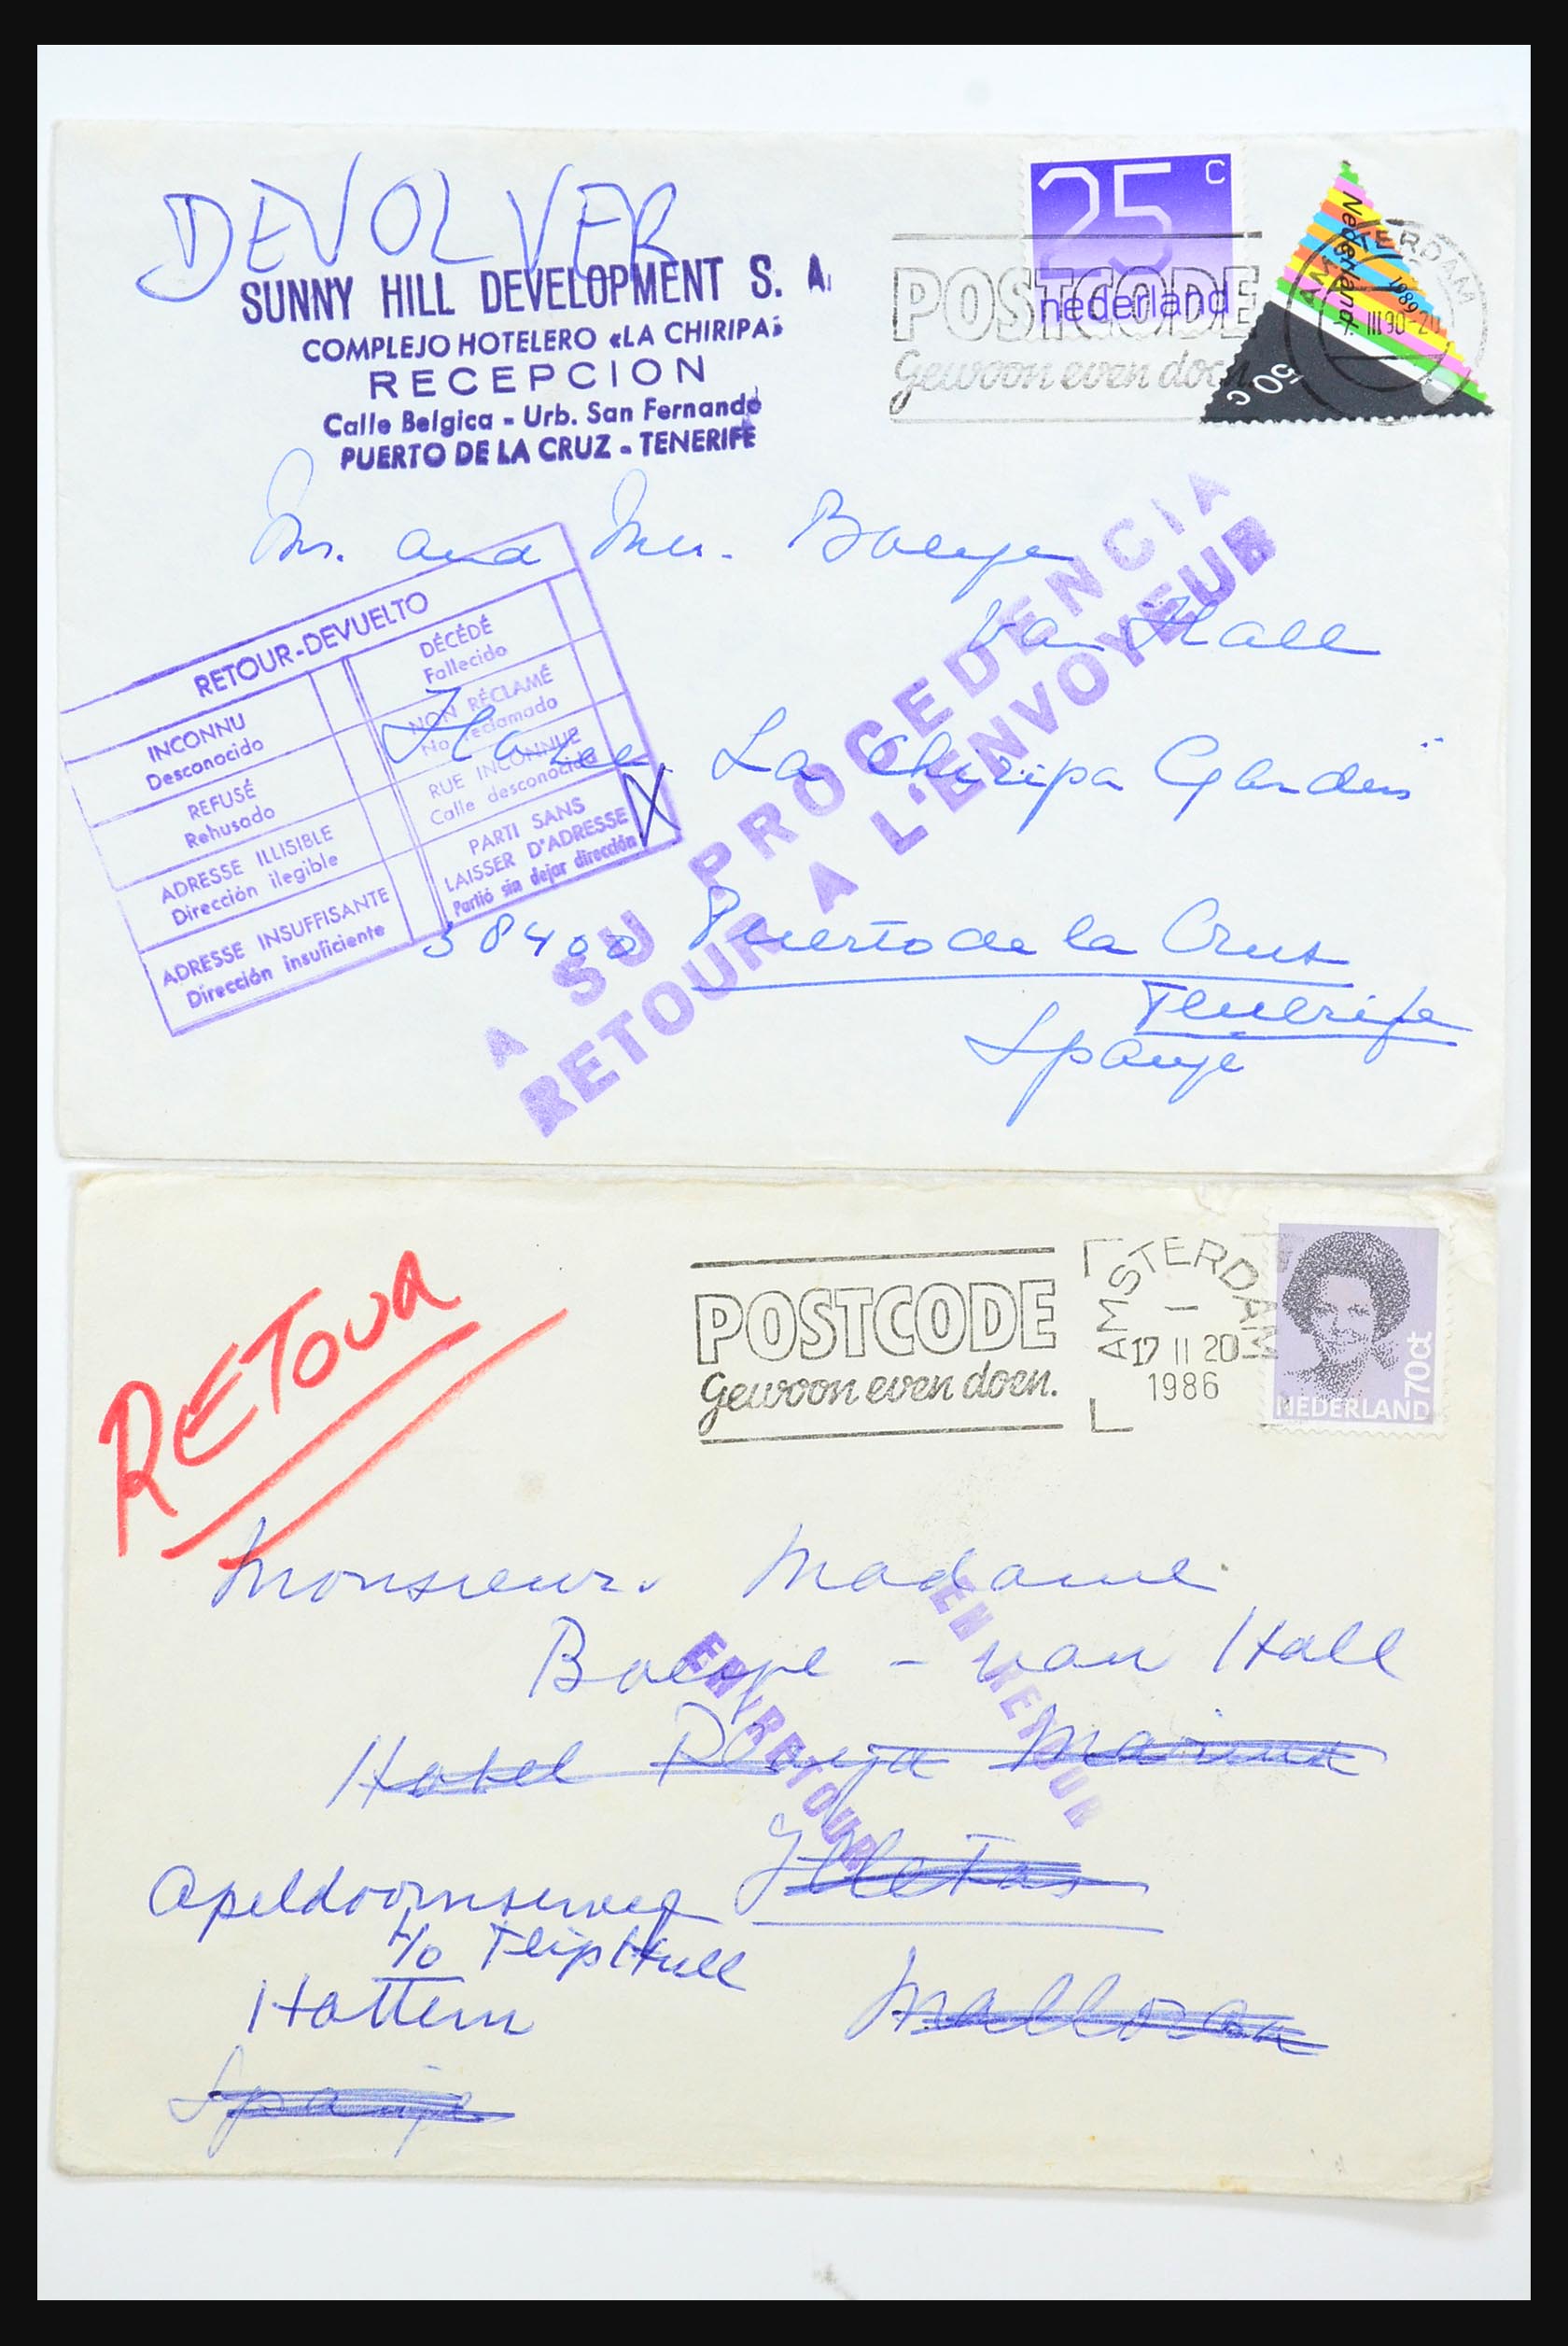 DEVOLVER
SUNNY HILL DEVELOPMENT S. A.
COMPLEJO HOTELERO «LA CHIRIPA»
RECEPCION
Calle Belgica - Urb. San Fernando
PUERTO DE LA CRUZ - TENERIFE
25 c
nederland
Nederland
50 c
POSTCODE
Gewoon even doen.
AMSTERDAM
1989
Mr. and Mrs. Boeye
Van Hall
Hotel La Chiripa Garden
38400 Puerto de la Cruz
Tenerife
Spanje
RETOUR-DEVUELTO
INCONNU
Desconocido
REFUSÉ
Rehusado
ADRESSE ILLISIBLE
Dirección ilegible
ADRESSE INSUFFISANTE
Dirección insuficiente
DÉCÉDÉ
Fallecido
NON RÉCLAMÉ
No reclamado
RUE INCONNUE
Calle desconocida
PARTI SANS
LAISSER D'ADRESSE
Partió sin dejar dirección
X
A SU PROCEDENCIA
RETOUR A L'ENVOYEUR
RETOUR
POSTCODE
Gewoon even doen.
AMSTERDAM
1
17 II 20
1986
70ct
NEDERLAND
Monsieur. Madame
Boeye - van Hall
Hotel Playa Marina
Illetas
Apeldoornseweg
Flip Hull
Hattem
Mallorca
Spanje
EN RETOUR
EN RETOUR